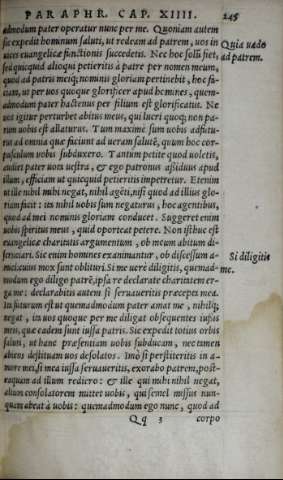 PARAPHR. CAP. XIIII. 245
admodum pater operatur nunc per me. Quoniam autem
sic expedit hominum saluti, ut redeam ad patrem, uos in
uices euangelicæ functionis succedetis. Nec hoc solũ fiet,
sed quicquid alioqui petieritis à patre per nomen meum,
quod ad patris meiq; nominis gloriam pertinebit, hoc fa
ciam, ut per uos quoque glorificer apud homines, quem-
admodum pater hactenus per filium est glorificatus. Ne
uos igitur perturbet abitus meus, qui lucri quoq; non pa-
rum uobis est allaturus. Tum maximè sum uobis adfutu-
rus ad omnia quæ faciunt ad ueram salutẽ, quum hoc cor-
pusculum uobis subduxero. Tantum petite quod uoletis,
audiet pater uota uestra, & ego patronus assiduus apud
illum, efficiam ut quicquid petieritis impetretur. Etenim
ut ille nihil mihi negat, nihil agẽti, nisi quod ad illius glo-
riam facit: ita nihil uobis sum negaturus, hoc agentibus,
quod ad mei nominis gloriam conducet. Suggeret enim
uobis spiritus meus, quid oporteat petere. Non istuc est
euangelicæ charitatis argumentum, ob meum abitum di-
scruciari. Sic enim homines exanimantur, ob discessum a-
mici cuius mox sunt obliti. Si me uerè diligitis, quemad-
modum ego diligo patrẽ, ipsa re declarate charitatem er-
ga me: declarabitis autem si seruaueritis præcepta mea.
Ita futurum est ut quemadmodum pater amat me, nihilq;
negat, ita uos quoque per me diligat obsequentes iussis
meis, quæ eadem sunt iussa patris. Sic expedit totius orbis
saluti, ut hanc præsentiam uobis subducam, nec tamen
abiens destituam uos desolatos. Imò si perstiteritis in a-
more mei, si mea iussa seruaueritis, exorabo patrem, post-
eaquam ad illum rediero: & ille qui mihi nihil negat,
alium consolatorem mittet uobis, qui semel missus nun-
quam abeat à uobis: quemadmodum ego nunc, quod ad
Qq 3 corpo
Quia uado
ad patrem.
Si diligitis
me.